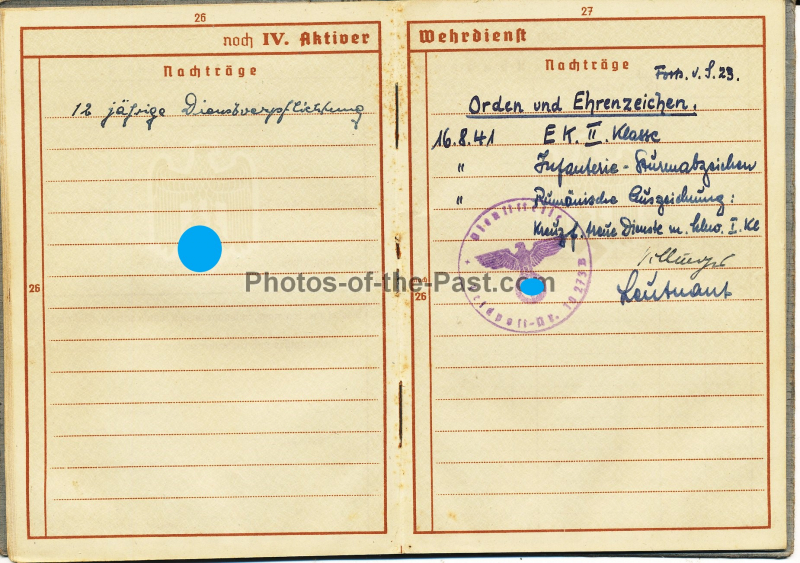 26
noch IV. Aktiver
Nachträge
12 jährige Dienstverpflichtung
26
27
Wehrdienst
Nachträge
Forts. v. S. 23.
Orden und Ehrenzeichen.
16.8.41 E K. II. Klasse
" Infanterie-Sturmabzeichen
" Rumänische Auszeichnung:
Kreuz f. treue Dienste m. Schw. I. Kl
Leutnant
Dienststelle
Feldpost-Nr. 10273 B
26
Photos-of-the-Past.com